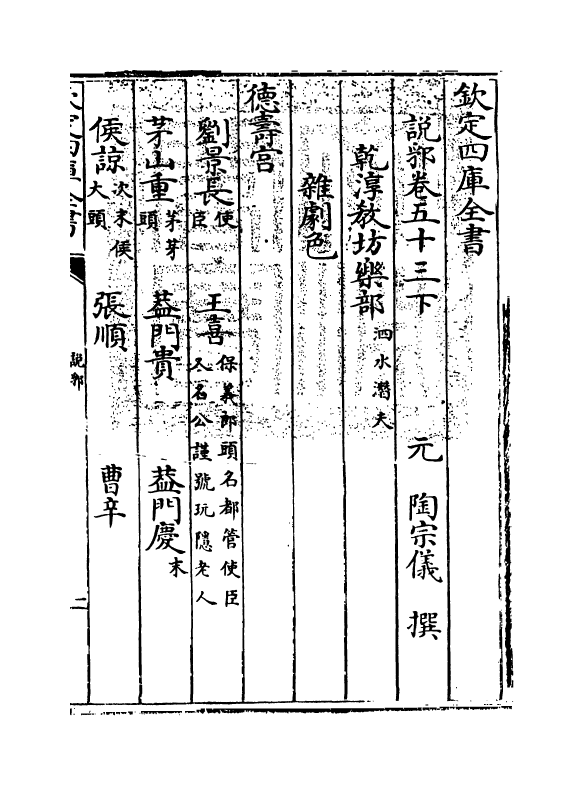 欽定四庫全書
說郛卷五十三下 元 陶宗儀 撰
乾淳教坊樂部 泗水潛夫
雜劇色
德壽宮
劉景長 使臣 王喜 保義郎頭名都管使臣又名公謹號玩隱老人
茅山重 茅芽頭 葢門貴 葢門慶 末
侯諒 次末侯大頭 張順 曹辛
說郛
二